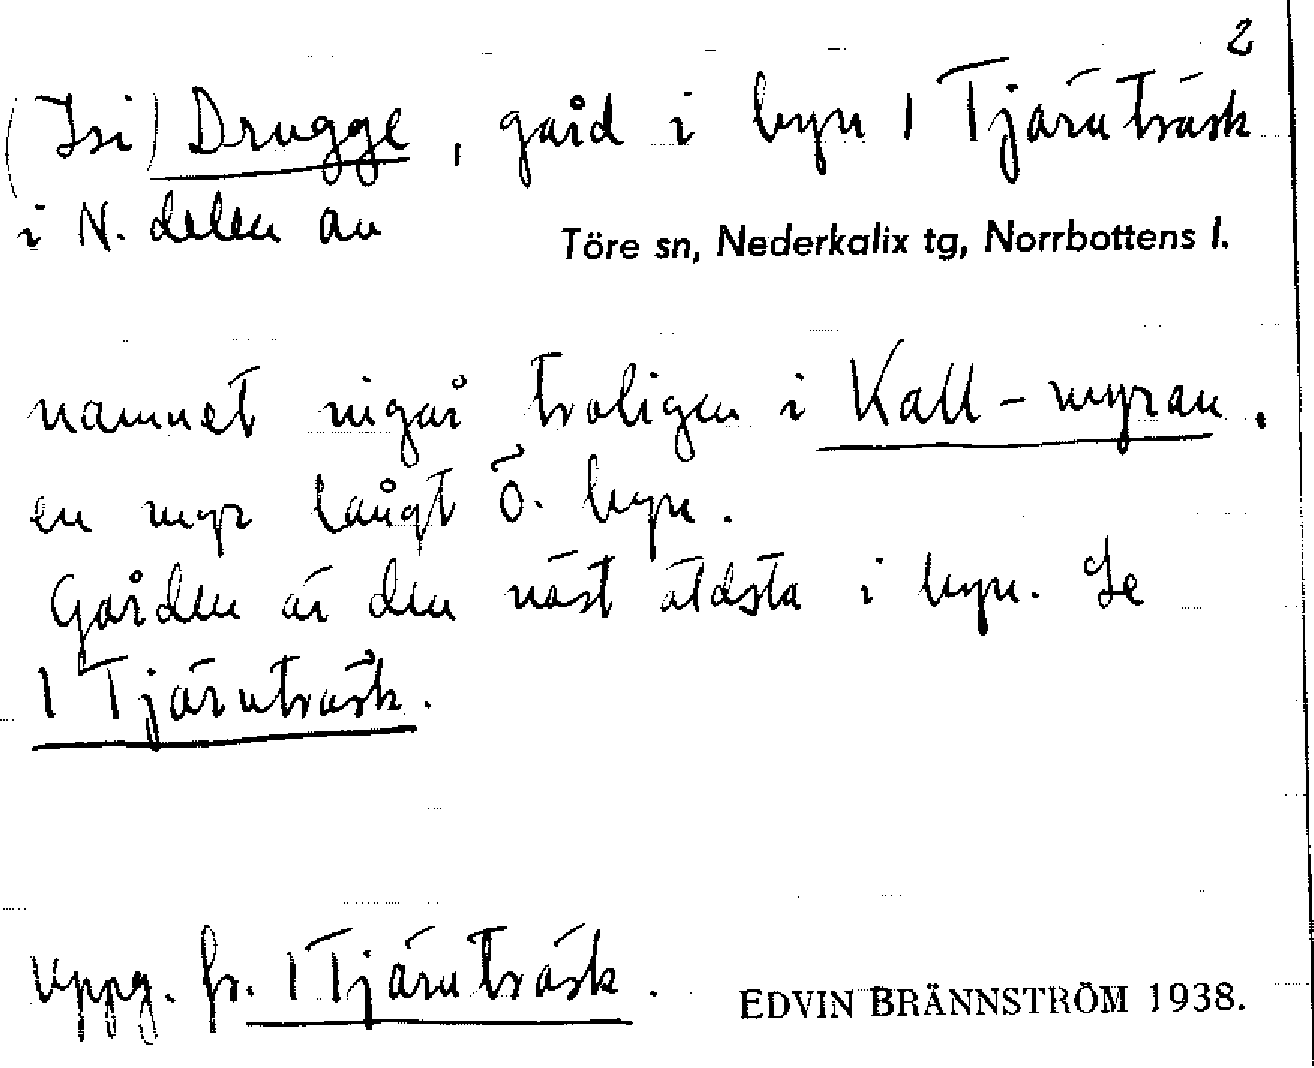 2
(Isi) Drugge, gård i byn 1 Tjärnträsk
i N. delen av
Töre sn, Nederkalix tg, Norrbottens l.
namnet ingår troligen i Kall-myran.
en myr långt Ö. byn.
Gården är den näst äldsta i byn. Se
1 Tjärnträsk.
Uppg. fr. 1 Tjärnträsk.
EDVIN BRÄNNSTRÖM 1938.